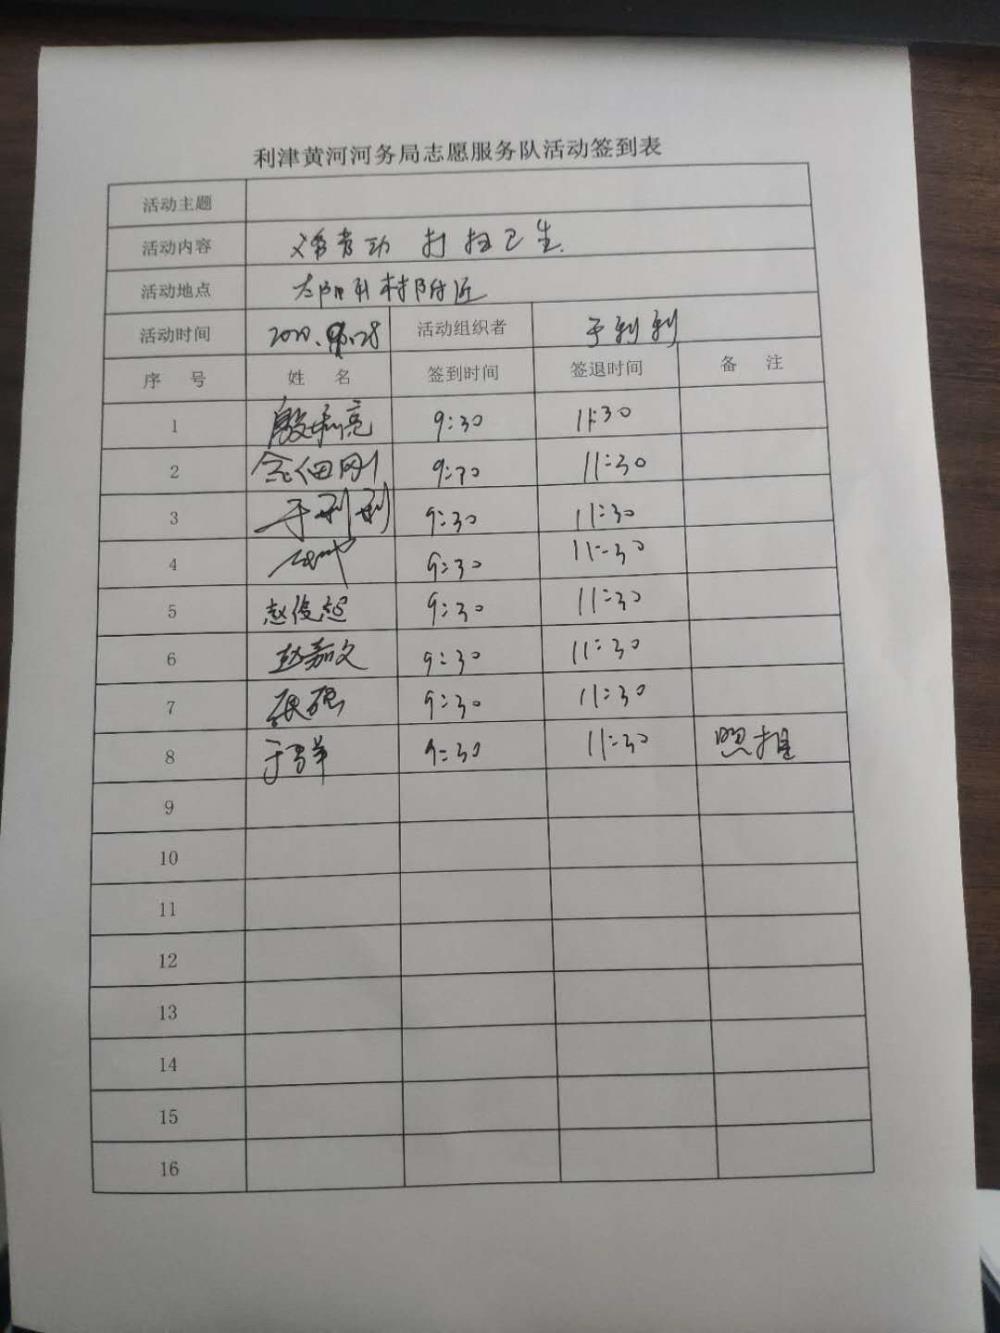 利津黄河河务局志愿服务队活动签到表
活动主题
活动内容 义务劳动 打扫卫生.
活动地点 村附近
活动时间 2020. .28 活动组织者 于利利
序 号 姓 名 签到时间 签退时间 备 注
1 殷利亮 9:30 11:30
2 9:30 11:30
3 于利利 9:30 11:30
4 9:30 11:30
5 赵俊超 9:30 11:30
6 赵嘉文 9:30 11:30
7 张强 9:30 11:30
8 9:30 11:30 照相
9
10
11
12
13
14
15
16